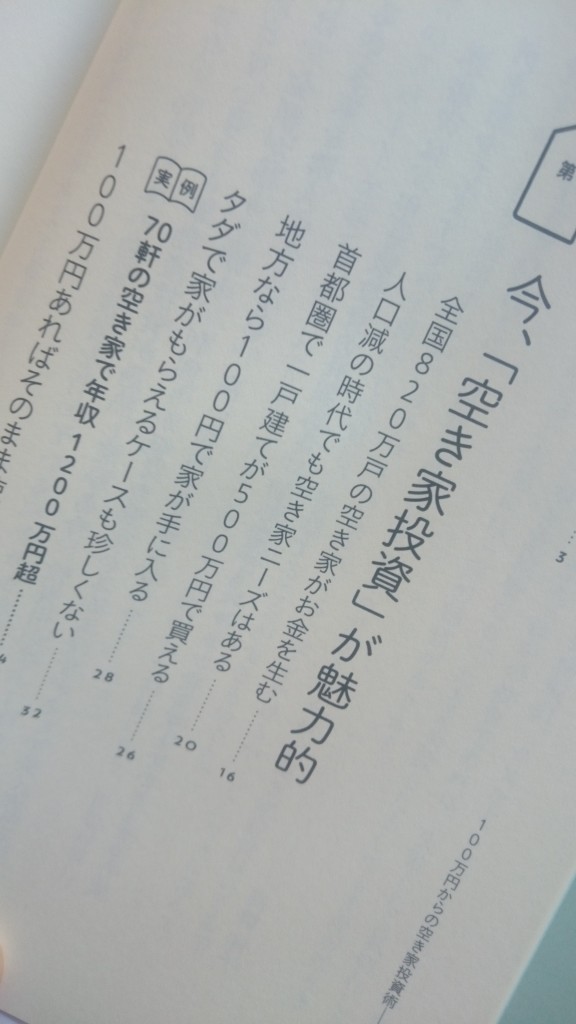 第
今、「空き家投資」が魅力的
全国820万戸の空き家がお金を生む……16
人口減の時代でも空き家ニーズはある……20
首都圏で一戸建てが500万円で買える……26
地方なら100円で家が手に入る……28
タダで家がもらえるケースも珍しくない……32
実例
70軒の空き家で年収1200万円超
100万円あればそのまま
……3
100万円からの空き家投資術